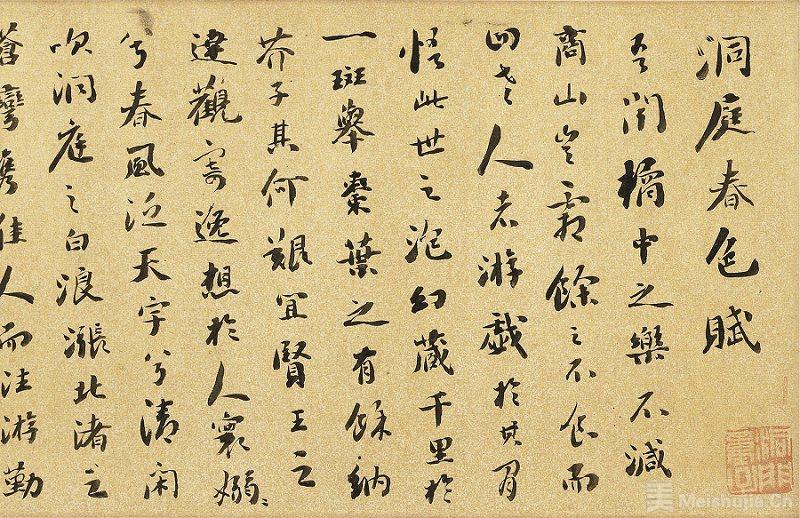 洞庭春色賦
吾聞橘中之樂不減
商山豈霜餘之不食而
四老人者游戯於其間
悟此世之泡幻藏千里於
一班舉棗葉之有餘納
芥子其何艱宜賢王之
達觀寄逸想於人寰嫋〻
兮春風泛天宇兮清閑
吹洞庭之白浪漲北渚之
蒼彎攜佳人而往游勤
美 Meishujia.Cn